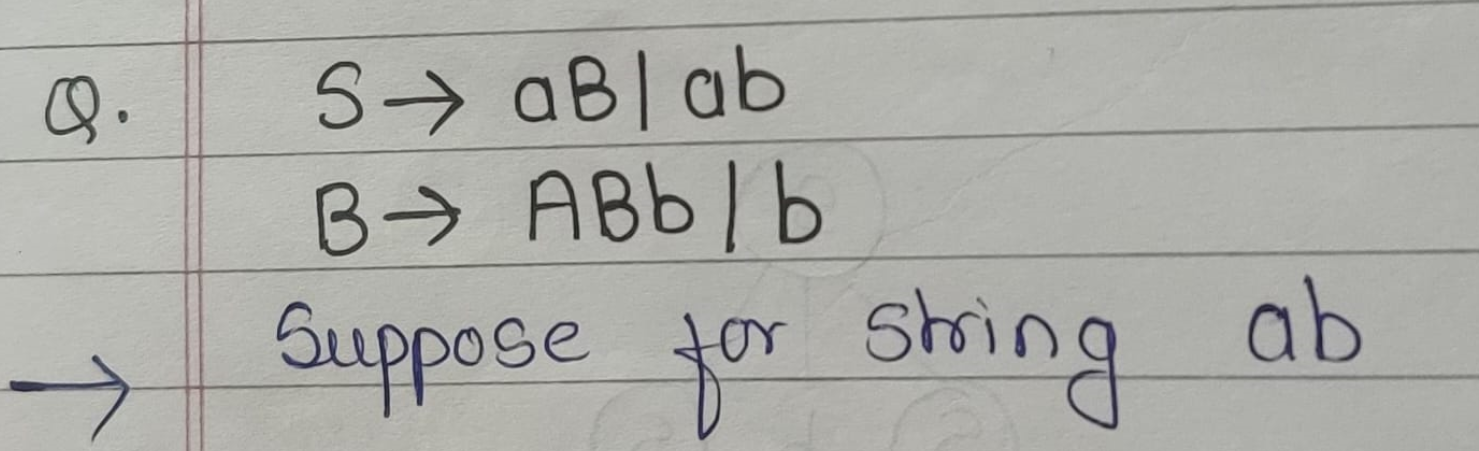 Q. S → aB | ab
B → ABb | b
→ Suppose for string ab